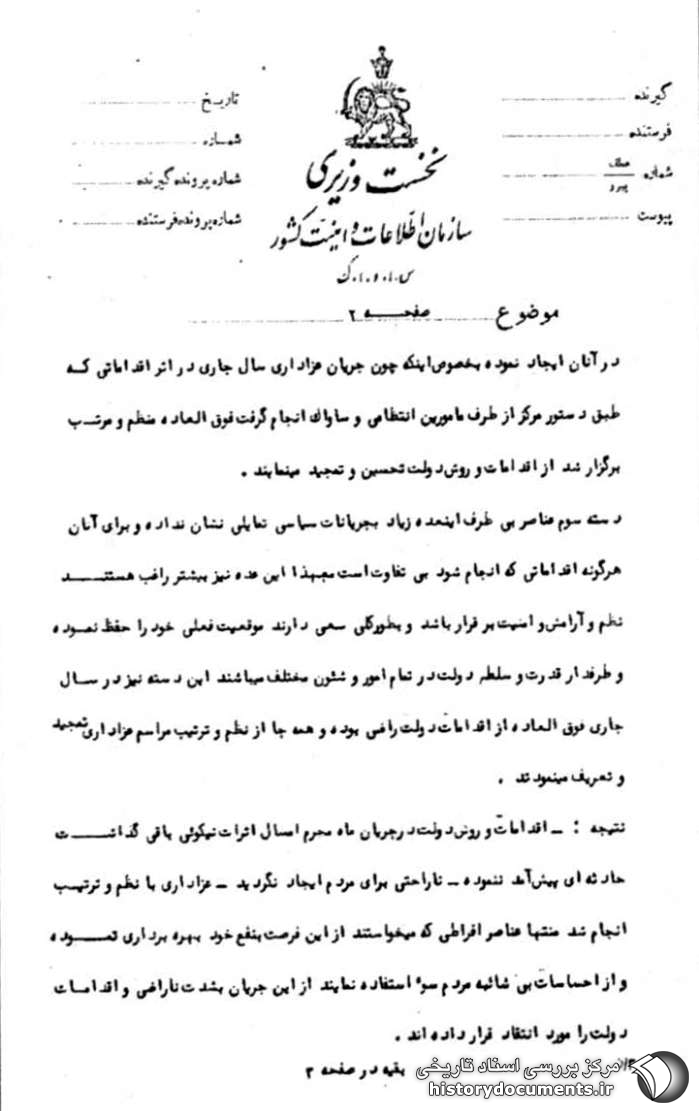 گیرنده
فرستنده
شماره عطف پیرو
پیوست
نخست وزیری
سازمان اطلاعات و امنیت کشور
س.ا.و.ا.ک
تاریخ
شماره
شماره پرونده گیرنده
شماره پرونده فرستنده
موضوع صفحه ۲
در آنان ایجاد نموده بخصوص اینکه چون جریان عزاداری سال جاری در اثر اقداماتی که
طبق دستور مرکز از طرف مامورین انتظامی و ساواك انجام گرفت فوق العاده منظم و مرتب
برگزار شد از اقدامات و روش دولت تحسین و تمجید مینمایند .
دسته سوم عناصر بی طرف اینعده زیاد بجریانات سیاسی تمایلی نشان نداده و برای آنان
هرگونه اقداماتی که انجام شود بی تفاوت است معهذا این عده نیز بیشتر راغب هستند
نظم و آرامش و امنیت بر قرار باشد و بطورکلی سعی دارند موقعیت فعلی خود را حفظ نموده
و طرفدار قدرت و سلطه دولت در تمام امور و شئون مختلف میباشند این دسته نیز در سال
جاری فوق العاده از اقدامات دولت راضی بوده و همه جا از نظم و ترتیب مراسم عزاداری تمجید
و تعریف مینمودند .
نتیجه : ـ اقدامات و روش دولت در جریان ماه محرم امسال اثرات نیکوئی باقی گذاشت
حادثه ای پیش آمد ننموده ـ ناراحتی برای مردم ایجاد نگردید ـ عزاداری با نظم و ترتیب
انجام شد منتها عناصر افراطی که میخواستند از این فرصت بنفع خود بهره برداری نموده
و از احساسات بی شائبه مردم سوء استفاده نمایند از این جریان بشدت ناراضی و اقدامات
دولت را مورد انتقاد قرار داده اند .
بقیه در صفحه ۳
مرکز بررسی اسناد تاریخی
historydocuments.ir